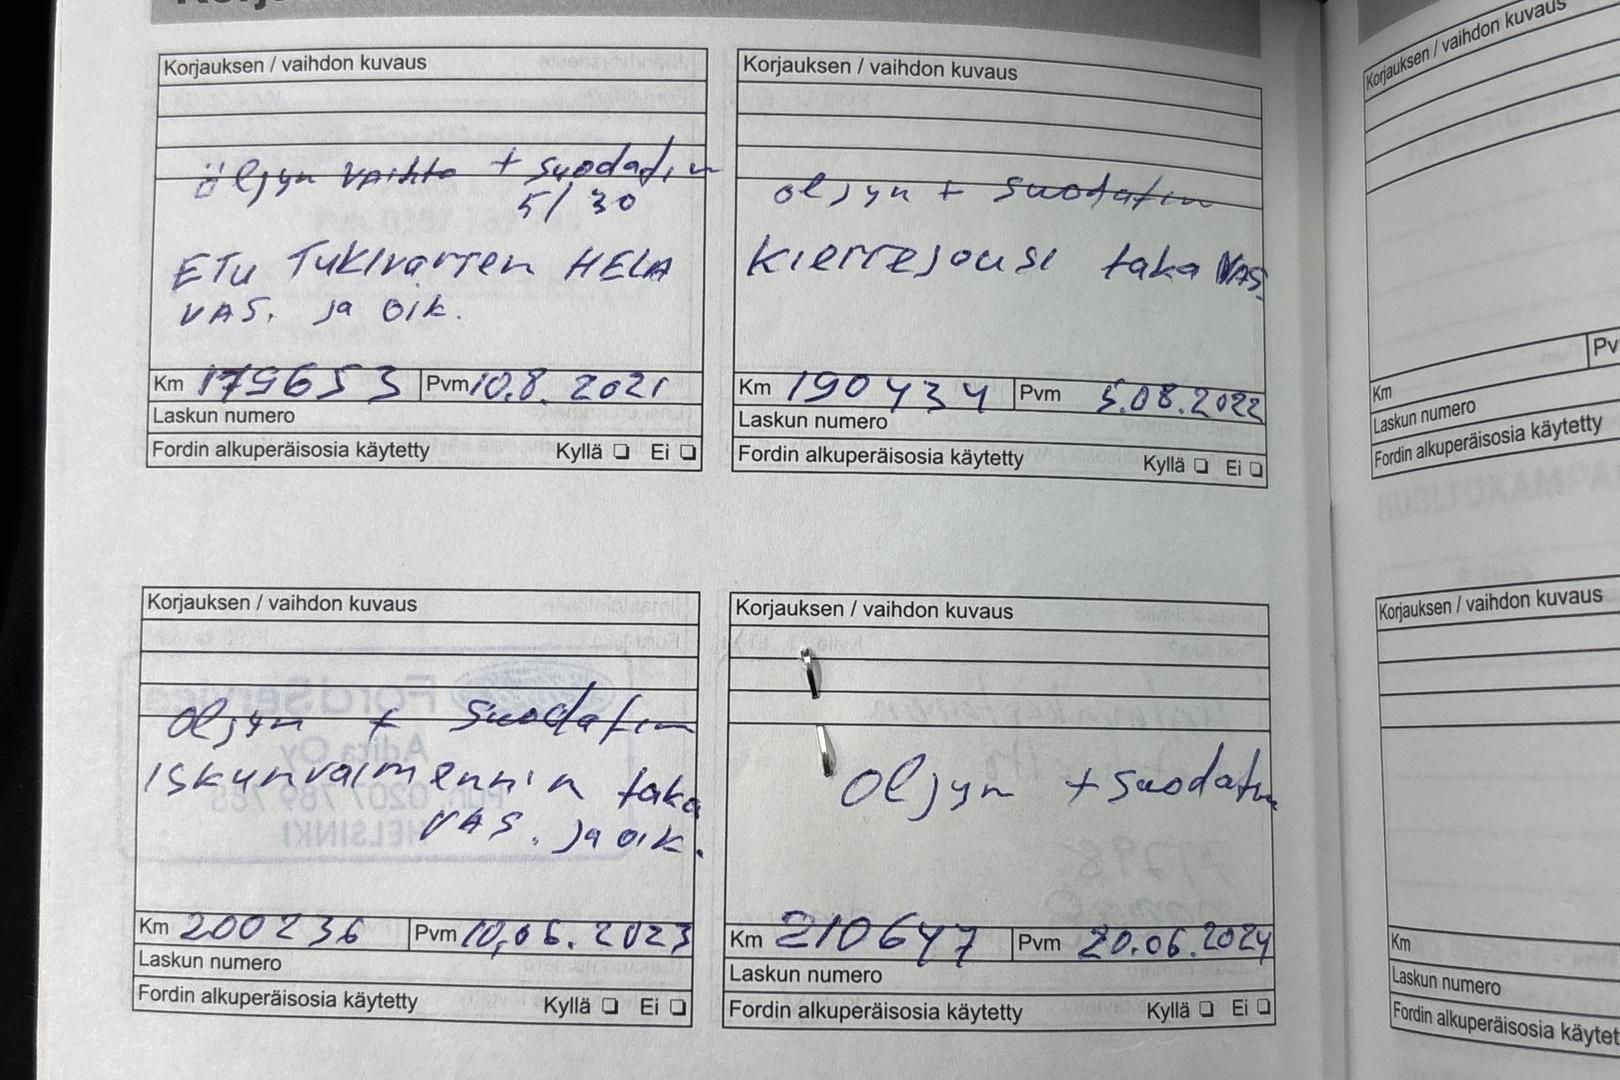 Korjauksen / vaihdon kuvaus
öljyn vaihto + suodatin
5/30
ETU TUKIvarren HELA
VAS. ja oik.
Km 179653 Pvm 10.8. 2021
Laskun numero
Fordin alkuperäisosia käytetty Kyllä ❏ Ei ❏
Korjauksen / vaihdon kuvaus
oljyn + suodatin
kierrejousi taka VAS.
Km 190434 Pvm 5.08.2022
Laskun numero
Fordin alkuperäisosia käytetty Kyllä ❏ Ei ❏
Korjauksen / vaihdon kuvaus
oljyn + suodatin
iskunvaimennin taka
VAS. ja oik.
Km 200236 Pvm 10.06.2023
Laskun numero
Fordin alkuperäisosia käytetty Kyllä ❏ Ei ❏
Korjauksen / vaihdon kuvaus
oljyn + suodatin
Km 210647 Pvm 20.06.2024
Laskun numero
Fordin alkuperäisosia käytetty Kyllä ❏ Ei ❏
Korjauksen / vaihdon kuvaus
Km Pv
Laskun numero
Fordin alkuperäisosia käytetty
Korjauksen / vaihdon kuvaus
Km
Laskun numero
Fordin alkuperäisosia käytet